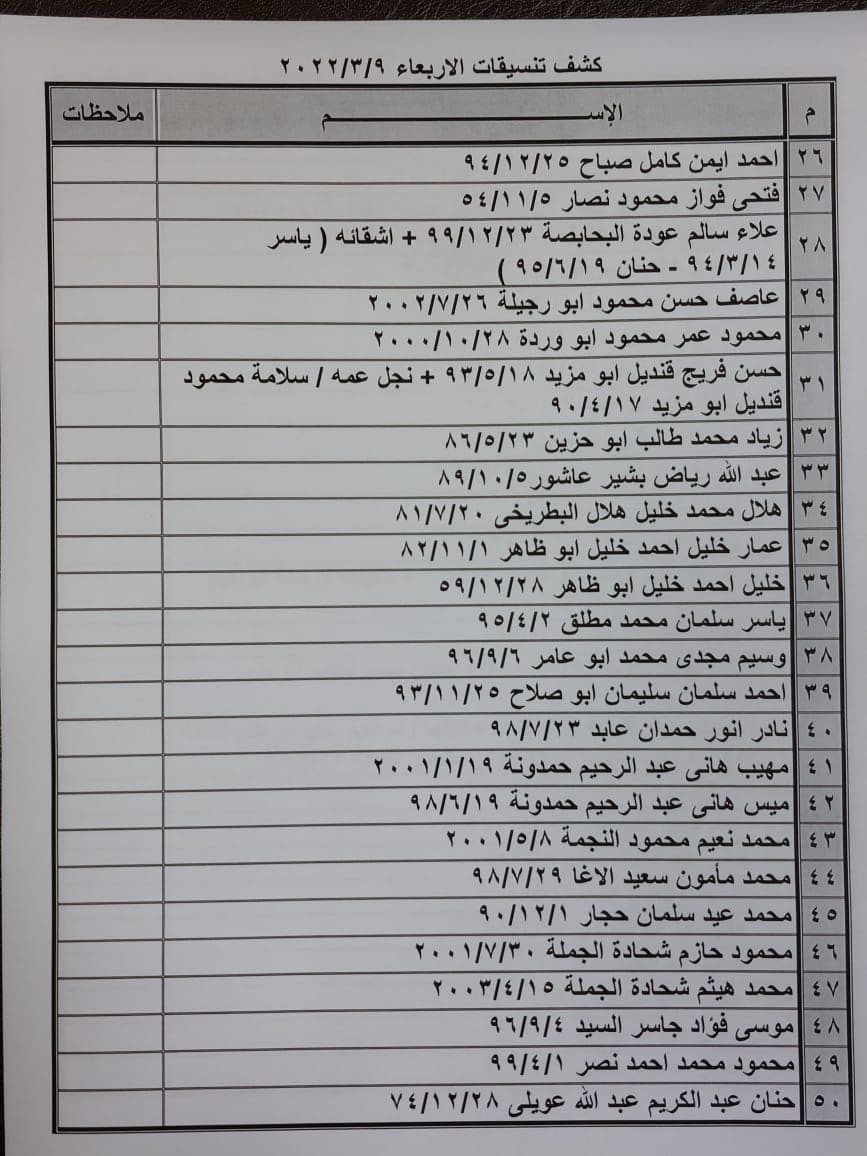 كشف تنسيقات الاربعاء ٢٠٢٢/٣/٩
م الإســـــــــــــــــــم ملاحظات
٢٦ احمد ايمن كامل صباح ٩٤/١٢/٢٥
٢٧ فتحى فواز محمود نصار ٥٤/١١/٥
٢٨ علاء سالم عودة البحابصة ٩٩/١٢/٢٣ + اشقائه ( ياسر
٩٤/٣/١٤ - حنان ٩٥/٦/١٩ )
٢٩ عاصف حسن محمود ابو رجيلة ٢٠٠٢/٧/٢٦
٣٠ محمود عمر محمود ابو وردة ٢٠٠٠/١٠/٢٨
٣١ حسن فريج قنديل ابو مزيد ٩٣/٥/١٨ + نجل عمه / سلامة محمود
قنديل ابو مزيد ٩٠/٤/١٧
٣٢ زياد محمد طالب ابو حزين ٨٦/٥/٢٣
٣٣ عبد الله رياض بشير عاشور ٨٩/١٠/٥
٣٤ هلال محمد خليل هلال البطريخى ٨١/٧/٢٠
٣٥ عمار خليل احمد خليل ابو ظاهر ٨٢/١١/١
٣٦ خليل احمد خليل ابو ظاهر ٥٩/١٢/٢٨
٣٧ ياسر سلمان محمد مطلق ٩٥/٤/٢
٣٨ وسيم مجدى محمد ابو عامر ٩٦/٩/٦
٣٩ احمد سلمان سليمان ابو صلاح ٩٣/١١/٢٥
٤٠ نادر انور حمدان عابد ٩٨/٧/٢٣
٤١ مهيب هانى عبد الرحيم حمدونة ٢٠٠١/١/١٩
٤٢ ميس هانى عبد الرحيم حمدونة ٩٨/٦/١٩
٤٣ محمد نعيم محمود النجمة ٢٠٠١/٥/٨
٤٤ محمد مأمون سعيد الاغا ٩٨/٧/٢٩
٤٥ محمد عيد سلمان حجار ٩٠/١٢/١
٤٦ محمود حازم شحادة الجملة ٢٠٠١/٧/٣٠
٤٧ محمد هيثم شحادة الجملة ٢٠٠٣/٤/١٥
٤٨ موسى فؤاد جاسر السيد ٩٦/٩/٤
٤٩ محمود محمد احمد نصر ٩٩/٤/١
٥٠ حنان عبد الكريم عبد الله عويلى ٧٤/١٢/٢٨